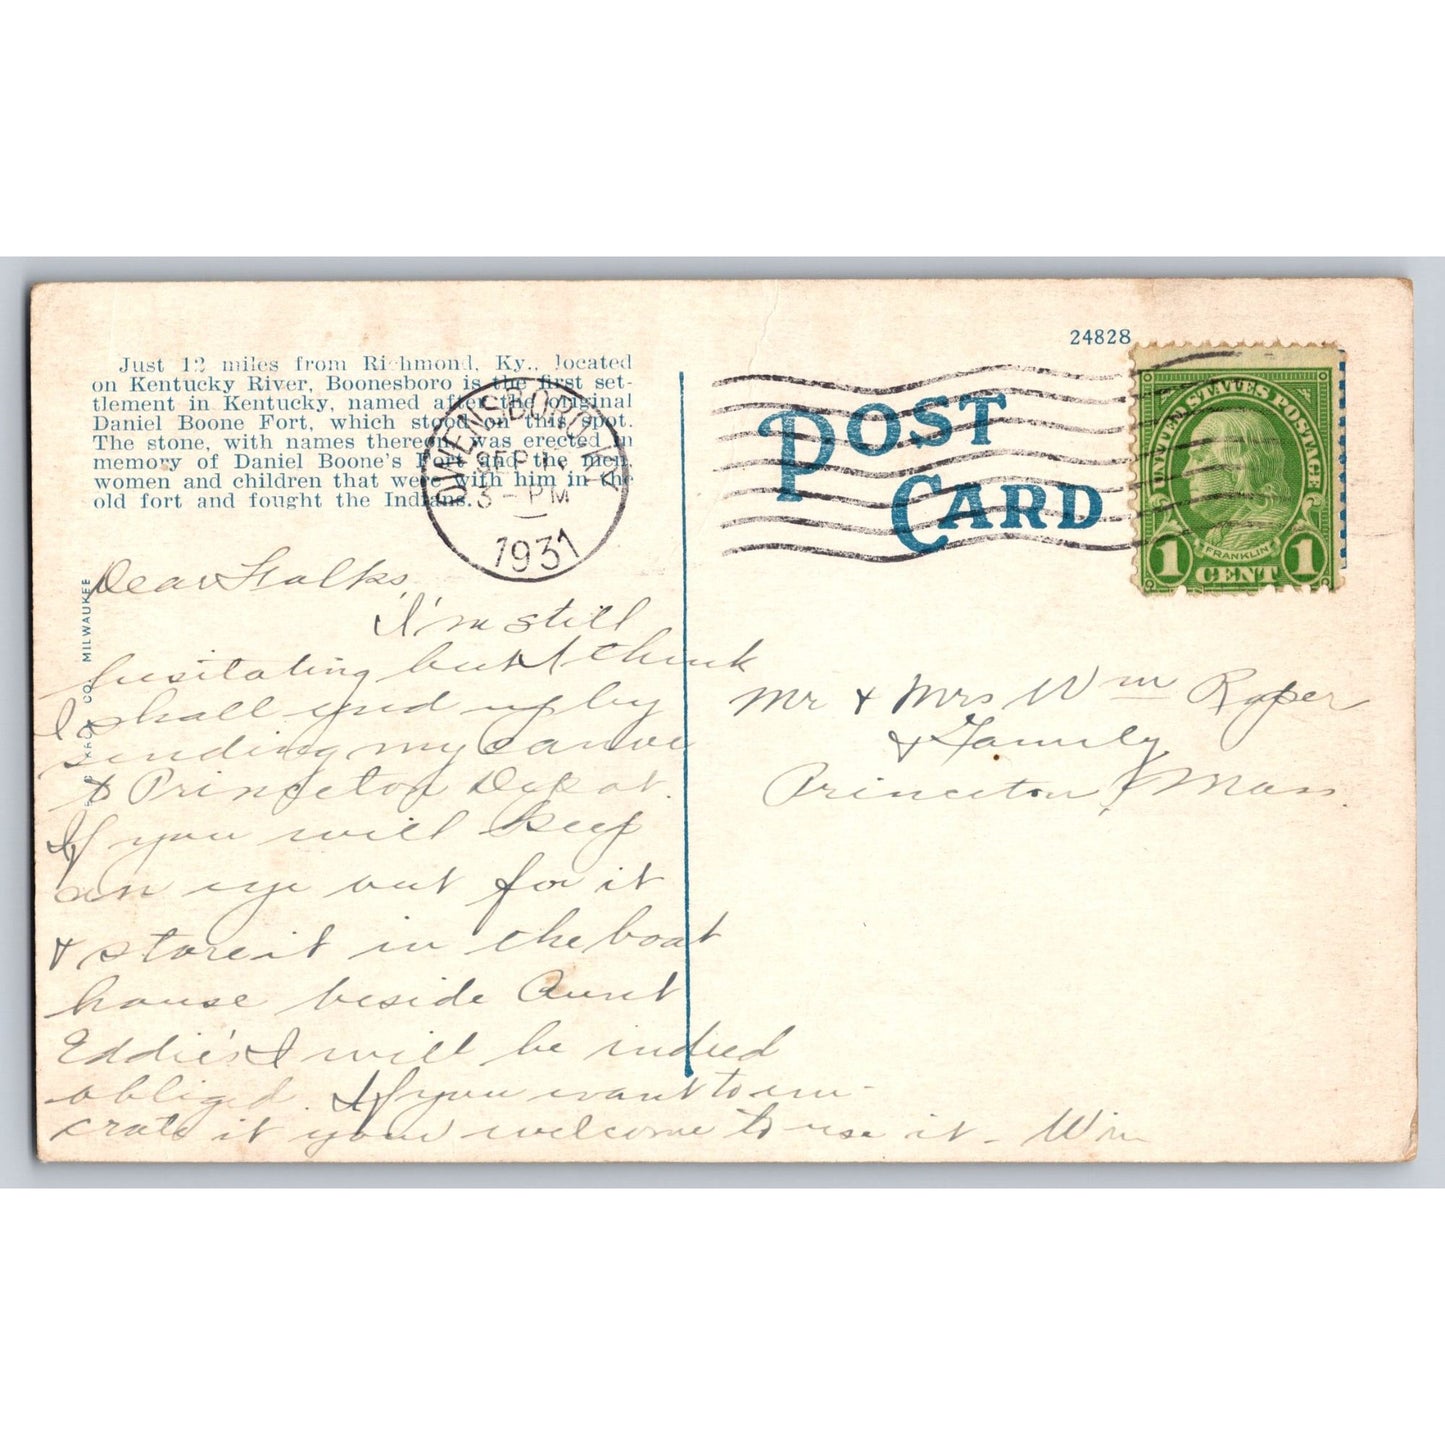 24828
Just 12 miles from Richmond, Ky., located
on Kentucky River, Boonesboro is the first set-
tlement in Kentucky, named after the original
Daniel Boone Fort, which stood on this spot.
The stone, with names thereon, was erected in
memory of Daniel Boone's Fort and the men,
women and children that were with him in the
old fort and fought the Indians.
OWENSBORO
SEP
3-PM
1931
POST
CARD
UNITED STATES POSTAGE
FRANKLIN
1 CENT 1
CO. MILWAUKEE
Dear Folks,
I'm still
hesitating but I think
I shall end up by
sending my canoe
to Princeton Depot.
If you will keep
an eye out for it
& store it in the boat
house beside Aunt
Eddie's I will be indeed
obliged. If you want to un-
crate it your welcome to use it - Wm
Mr & Mrs Wm Roper
& Family
Princeton, Mass.